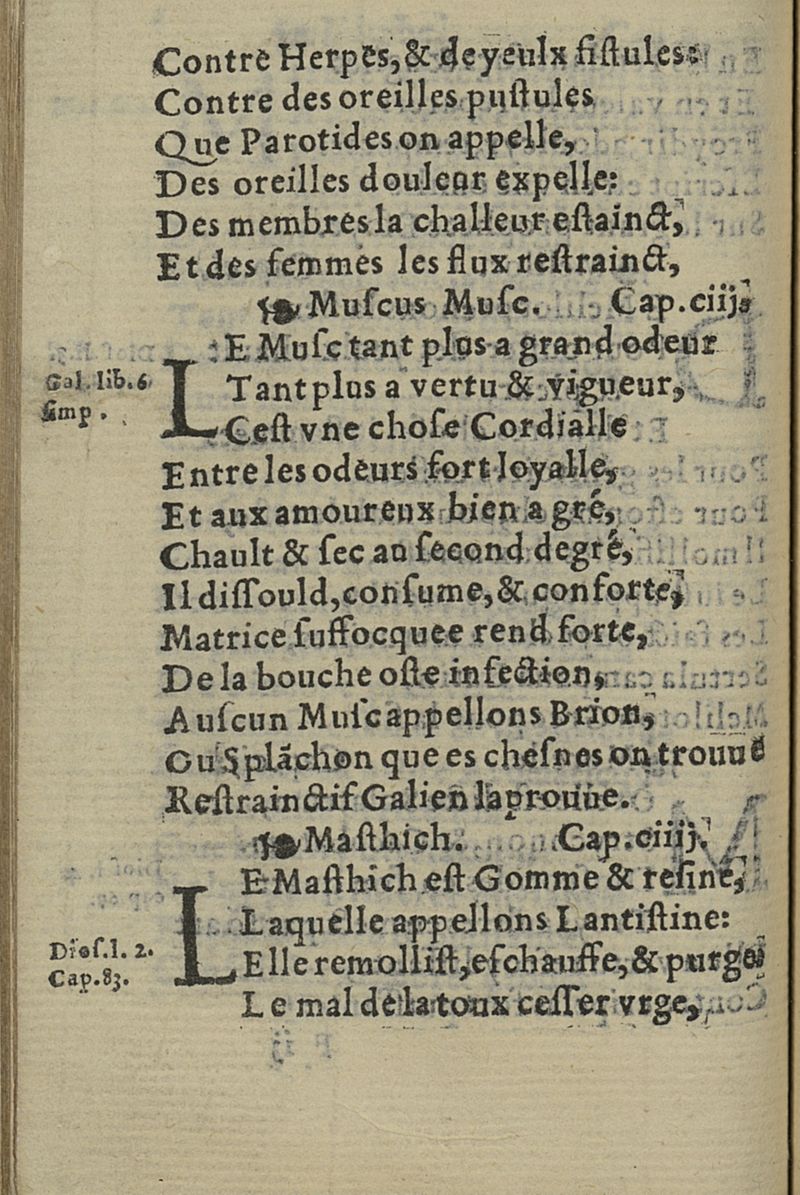 Contre Herpes, & de yeulx fiſtules:
Contre des oreilles puſtules
Que Parotides on appelle,
Des oreilles douleur expelle:
Des membres la challeur eſtainct,
Et des femmes les flux reſtrainct,
Muſcus Muſc. Cap.ciij.
LE Muſc tant plus a grand odeur
Gal. lib.6.
ſimp.
Tant plus a vertu & vigueur,
Ceſt vne choſe Cordialle
Entre les odeurs fort loyalle,
Et aux amoureux bien a gré,
Chault & ſec au ſecond degré,
Il diſſould, conſume, & conforte,
Matrice ſuffocquee rend forte,
De la bouche oſte infection,
Auſcun Muſc appellons Brion,
Ou Splãchon que es cheſnes on trouue
Reſtrainctif Galien lapprouue.
Maſthich. Cap.ciiij.
LE Maſthich eſt Gomme & reſine,
Laquelle appellons Lantiſtine:
Dioſ.l. 2.
Cap.83.
Elle remolliſt, eſchauffe, & purge
Le mal de la toux ceſſer vrge,